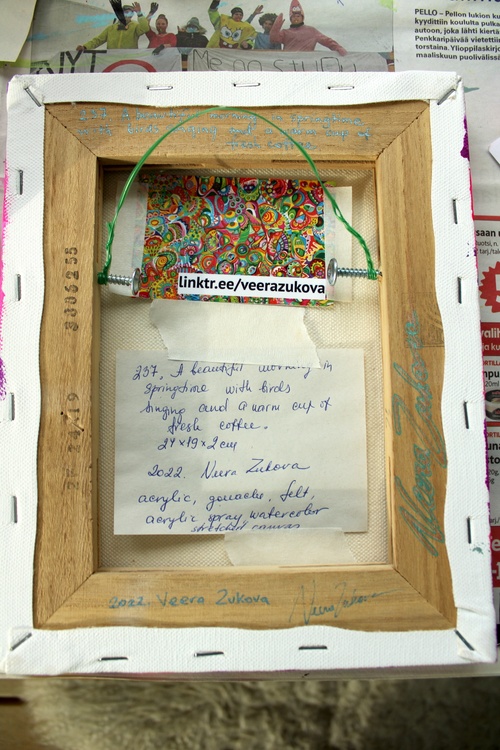 PELLO – Pellon lukion
kyydittiin kouluista
autoon, joka lähti
Penkkaripäivää vietettiin
torstaina. Ylioppilaskirjoi
maaliskuun puolivälissä
237. A beautiful morning in springtime
with birds singing and a warm cup of
fresh coffee
linktr.ee/veerazukova
3005255
237. A beautiful morning in
springtime with birds
singing and a warm cup of
fresh coffee.
24×19×2cm
2022. Veera Zukova
acrylic, gouache, felt,
acrylic spray, watercolor
stretched canvas
Veera Zukova
2022. Veera Zukova Veera Zukova